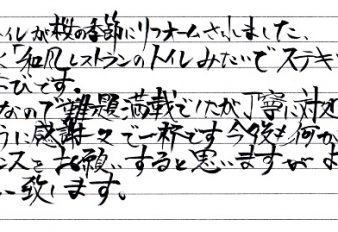 トイレが桜の季節にリフォームされました、
く「和風レストランのトイレみたいでステキ
びです。
なので難題満載でしたが丁寧に対応
うに感謝々で一杯です今後も何か
ンスをお願いすると思いますがよ
い致します。